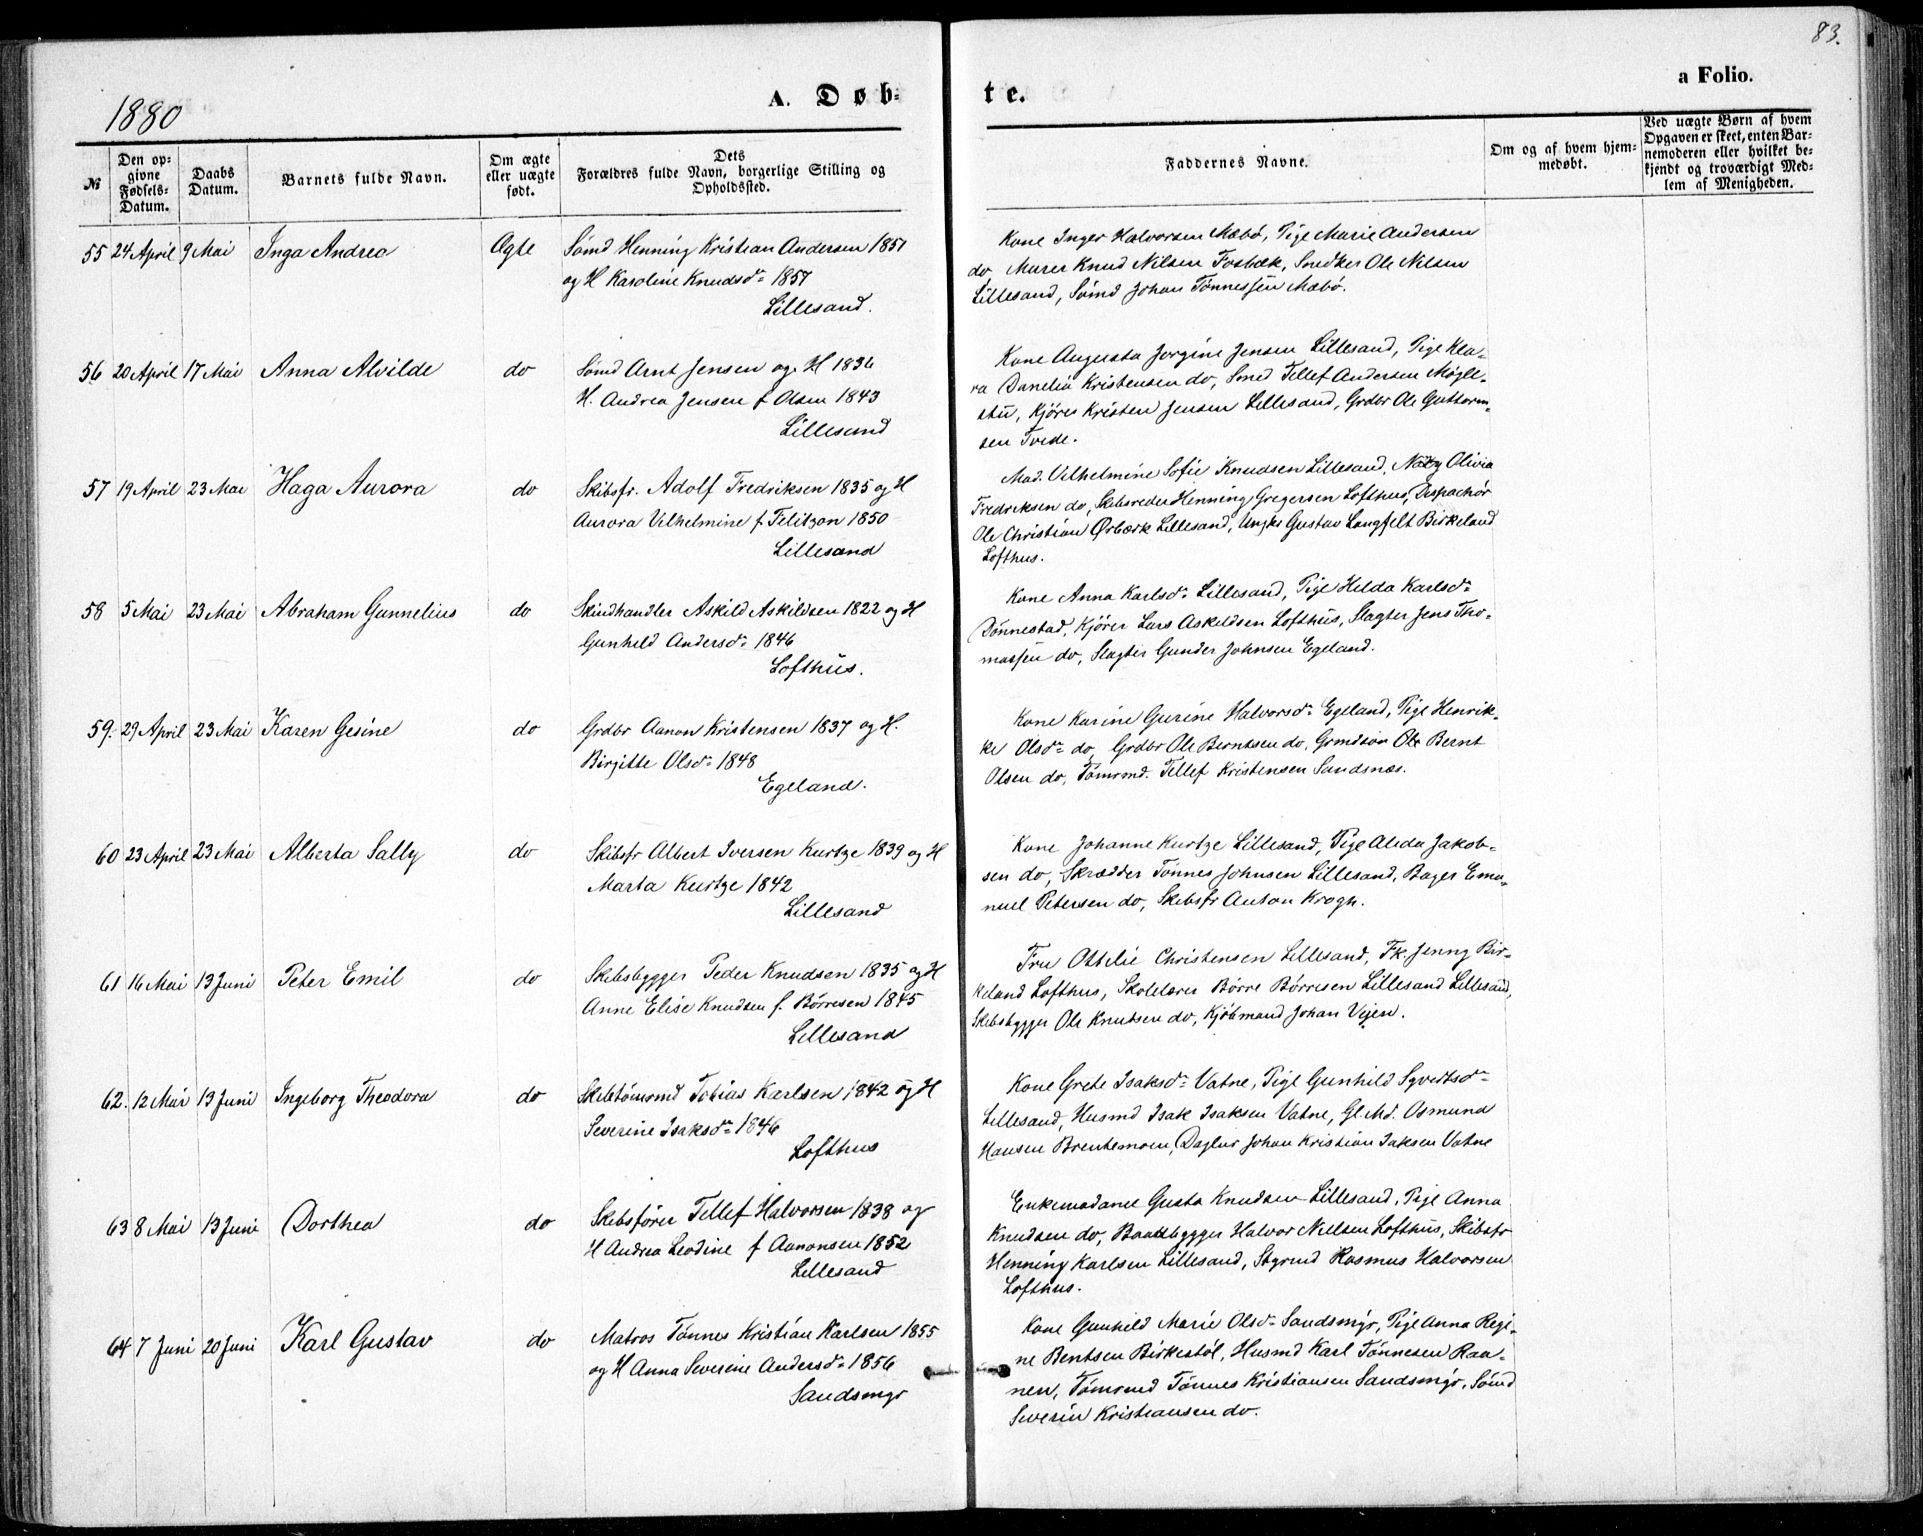 83.
1880
A. Døb-
te.
a Folio.
№
Den op-
givne
Fødsels-
Datum.
Daabs
Datum.
Barnets fulde Navn.
Om ægte
eller uægte
født.
Dets
Forældres fulde Navn, borgerlige Stilling og
Opholdssted.
Faddernes Navne.
Om og af hvem hjem-
medøbt.
Ved uægte Børn af hvem
Opgaven er skeet, enten Bar-
nemoderen eller hvilket be-
kjendt og troværdigt Med-
lem af Menigheden.
55 24 April 9 Mai Inga Andrea Ægte Sømd Henning Kristian Andersen 1851
og H Karoline Knudsd: 1857
Lillesand.
Kone Inger Halvorsen Mæbø, Pige Marie Andersen
do Murer Knud Nilsen Fosbæk, Snedker Ole Nilsen
Lillesand, Sømd Johan Tønnessen Mæbø.
56 20 April 17 Mai Anna Alvilde do Sømd Arnt Jensen og H 1836
H. Andrea Jensen f Olsen 1843
Lillesand
Kone Augusta Jørgine Jensen Lillesand, Pige Kla-
ra Danelia Kristensen do, Smed Tellef Andersen Møgle-
stu, Kjører Kristen Jensen Lillesand, Grdbr Ole Guttorm-
sen Tvede.
57 19 April 23 Mai Haga Aurora do Skibsfr. Adolf Fredriksen 1835 og H
Aurora Vilhelmine f. Felitzon 1850
Lillesand
Mad. Vilhelmine Sofie Knudsen Lillesand, Olivia
Fredriksen do, Skibsreder Henning Gregersen Lofthus, Dispachør
Ole Christian Ørbæck Lillesand, Ungkr Gustav Langfelt Birkeland
Lofthus.
58 5 Mai 23 Mai Abraham Gunnelius do Skindhandler Askild Askildsen 1822 og H
Gunhild Andersd: 1846
Lofthus.
Kone Anna Karlsd: Lillesand, Pige Helda Karlsd:
Dønnestad, Kjører Lars Askildsen Lofthus, Slagter Jens Tho-
massen do, Slagter Gunder Johnsen Egeland.
59. 29 April 23 Mai Karen Gesine do Grdbr Aanon Kristensen 1837 og H.
Birgitte Olsd: 1848
Egeland.
Kone Karine Gurine Halvorsd: Egeland, Pige Henrik-
ke Olsd: do, Grdbr Ole Berntsen do, Grmdsøn Ole Bernt
Olsen do, Tømrmd. Tellef Kristensen Sandsnæs.
60 23 April 23 Mai Alberta Sally do Skibsfr Albert Iversen Kurtze 1839 og H
Marta Kurtze 1842
Lillesand
Kone Johanne Kurtze Lillesand, Pige Alida Jakob-
sen do, Skrædder Tønnes Johnsen Lillesand, Bager Ema-
nuel Petersen do, Skibsfr Anton Krogh.
61 16 Mai 13 Juni Peter Emil do Skibsbygger Peder Knudsen 1835 og H
Anne Elise Knudsen f. Børresen 1845
Lillesand
Fru Ottilie Christensen Lillesand, Fk. Jenny Bir-
keland Lofthus, Skolelærer Børre Børresen Lillesand Lillesand,
Skibsbygger Ole Knutsen do, Kjøbmand Johan Vejen.
62. 12 Mai 13 Juni Ingeborg Theodora do Skibstømrmd Tobias Karlsen 1842 og H
Severine Isaksd: 1846
Lofthus
Kone Grete Isaksd: Vatne, Pige Gunhild Syvertsd:
Lillesand, Husmd Isak Isaksen Vatne, Gl. Md. Osmund
Hansen Brentemoen, Daglnr Johan Kristian Isaksen Vatne
63 8 Mai 13 Juni Dorthea do Skibsfører Tellef Halvorsen 1838 og
H Andrea Leodine f Aanonsen 1852
Lillesand
Enkemadame Gusta Knudsen Lillesand, Pige Anna
Knudsen do, Baadbygger Halvor Nilsen Lofthus, Skibsfr
Henning Karlsen Lillesand, Styrmd Rasmus Halvorsen
Lofthus.
64 7 Juni 20 Juni Karl Gustav do Matros Tønnes Kristian Karlsen 1855
og H Anna Severine Andersd: 1856
Sandsmyr
Kone Gunhild Marie Olsd: Sandsmyr, Pige Anna Regi-
ne Bentsen Birkestøl, Husmd Karl Tønnesen Raa-
nen, Tømrmd Tønnes Kristiansen Sandsmyr, Sømd
Severin Kristiansen do.